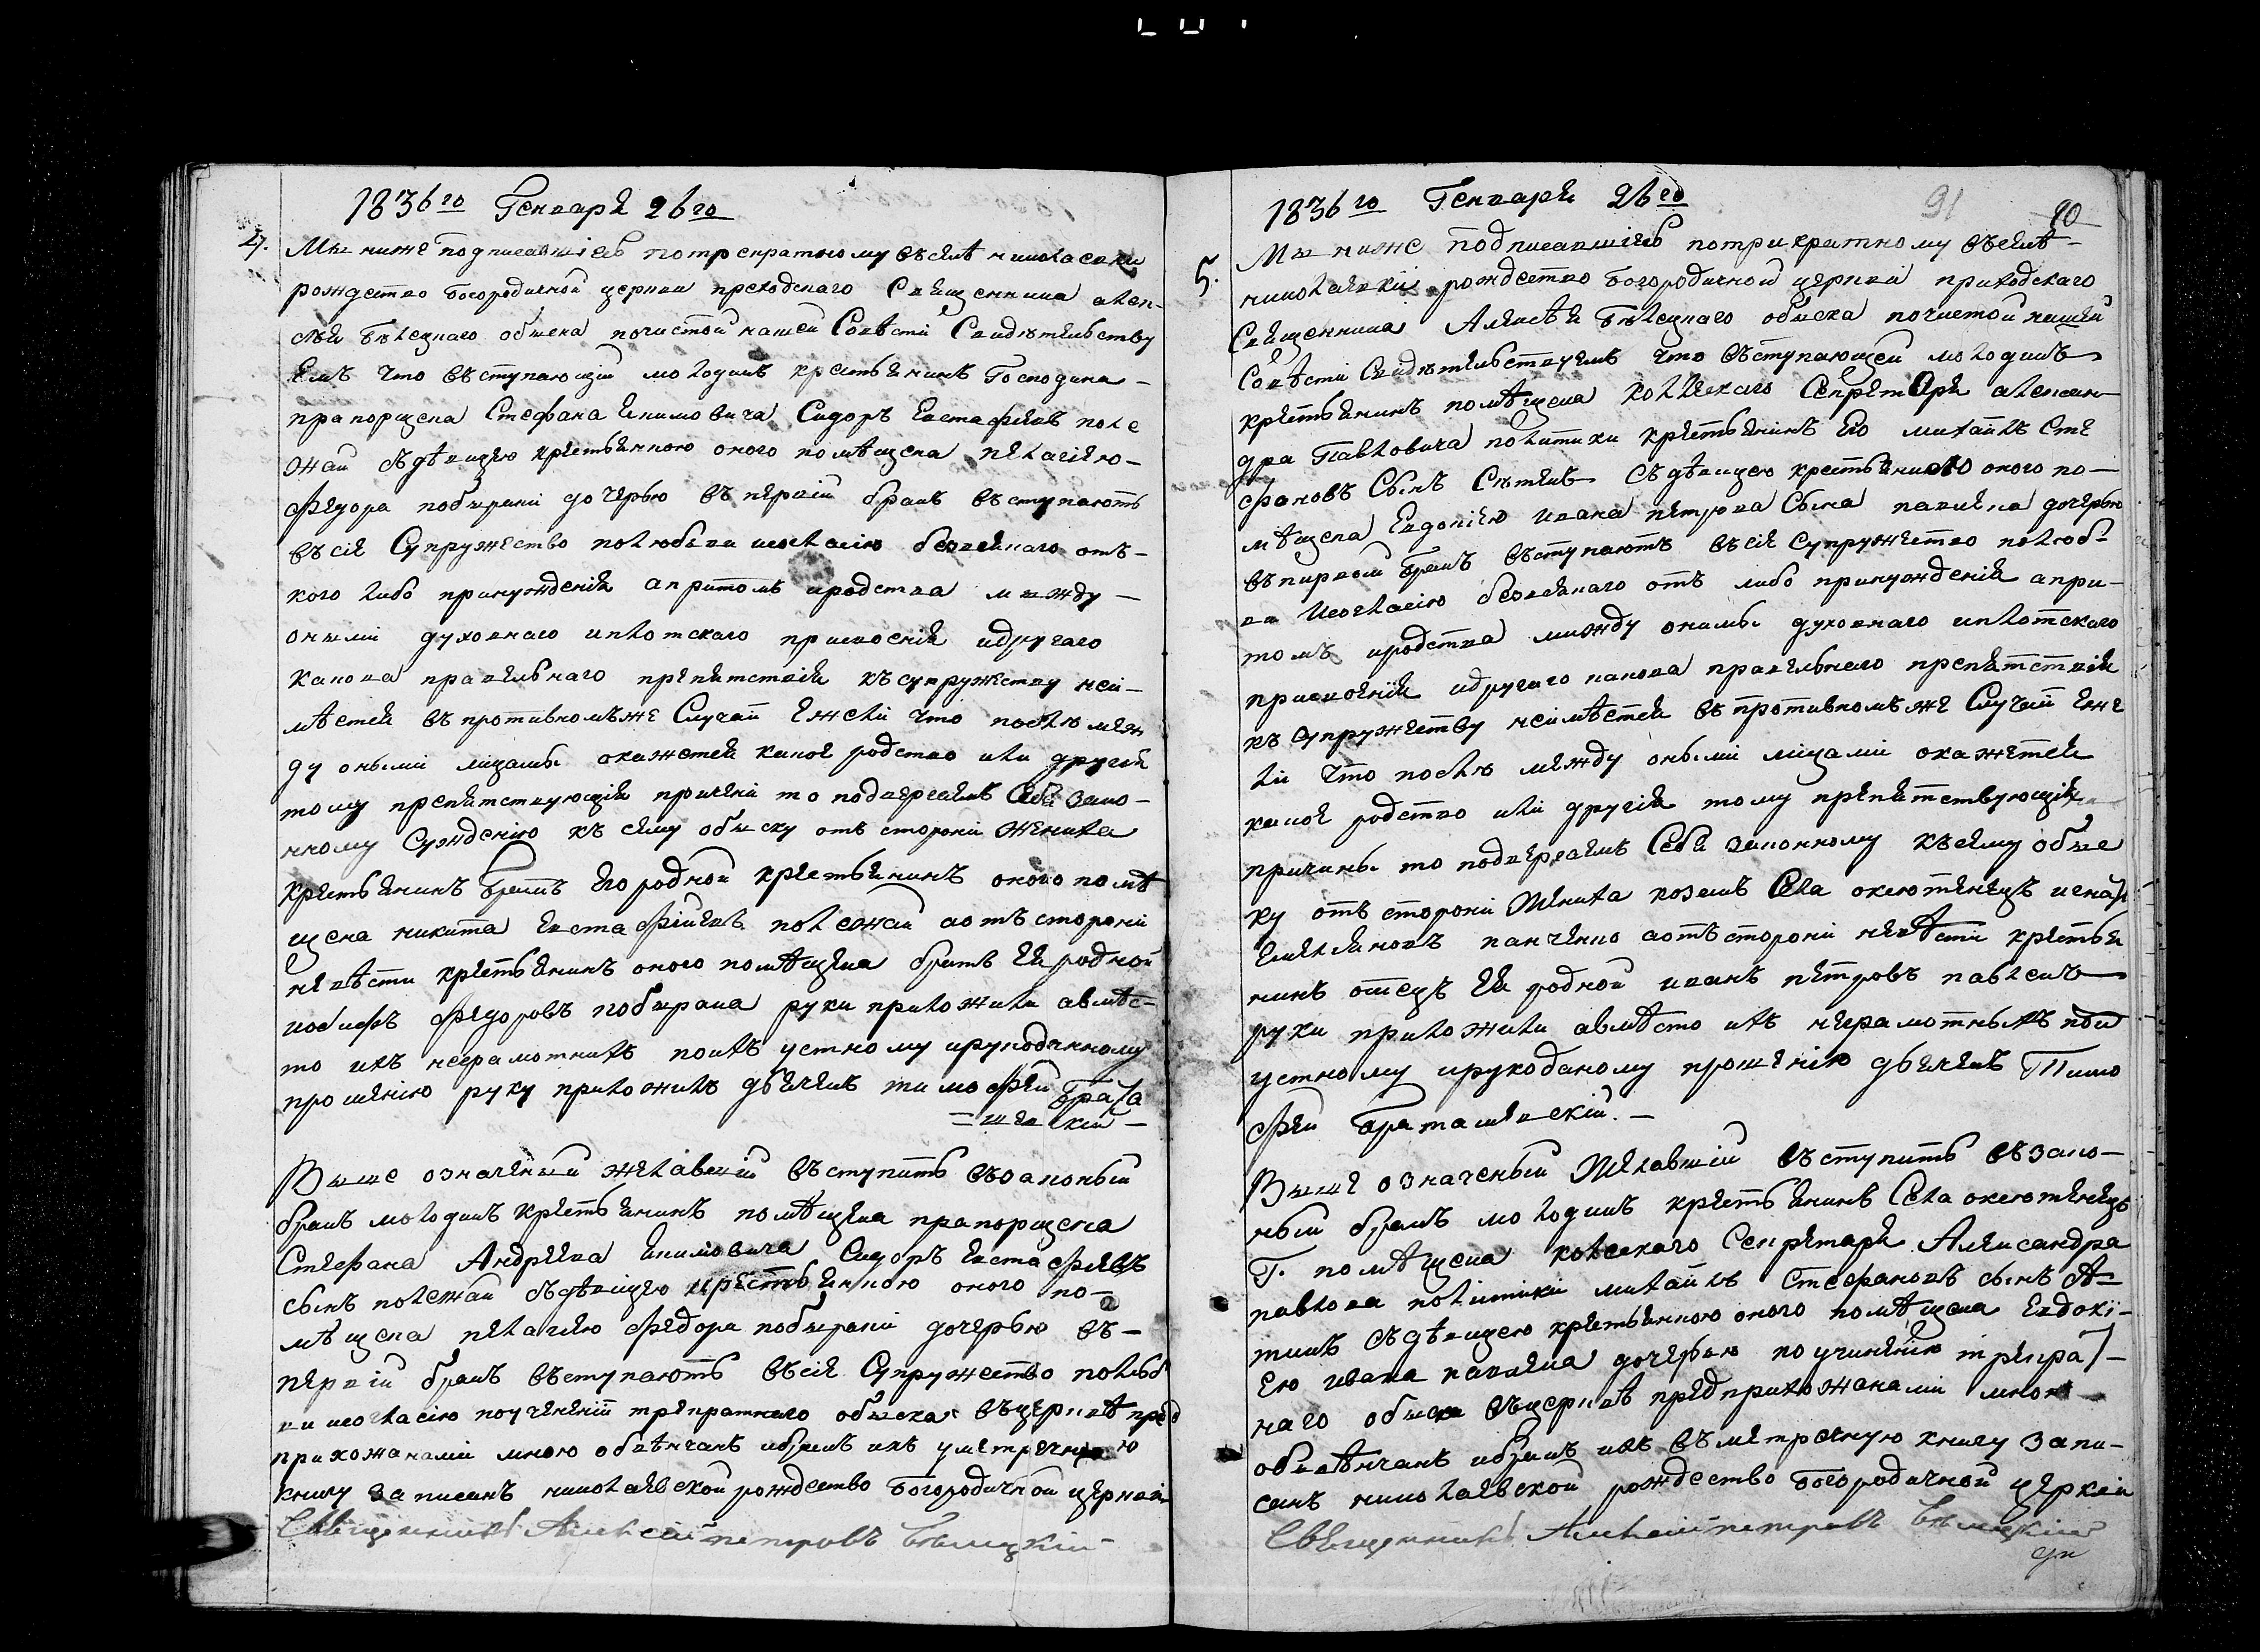 1836го Генваря 26го
4. Мы ниже подписавшіеъ потрекратному въсемъ николаевки
рождество Богородичной церкви преходскаго Священника алек-
сѣя Бѣлецкаго обыска почистой нашей Совѣсти Свидѣтельству
емъ что въступающій молодикъ крестьянинъ Господина-
прапорщека Стефана Якимовича Сидоръ Евстафіевъ поле
жай съдѣвицею крестьянкою оного помѣщека пелагіею-
Федора побирани дочерью въ первій бракъ въступаютъ
въсіе Супружество полюбви исогласію безвсякаго отъ-
кого либо принужденія апритомъ иродства между-
оными духовнаго иплотскаго присвоенія идругаго
Канона правельнаго препятствія къ супружеству неи-
мѣется въ противномъже Случаи ежели что после меж
ду оными лицами окажется какое родство или другія
тому препятствующія причени то подвергаемъ Себя зако-
нному Суждению къ сему обыску отъ сторони Жениха
крестьянинъ братъ его родной крестьянинъ оного помѣ
щека никита Евстафіевъ полежай аотъ сторони
невѣсти крестьянинъ оного помѣщека братъ ея родной
иосифъ Федоровъ побирана руки приложили авмѣс-
то ихъ неграмотнихъ поихъ устному ируподанному
прошенію руку приложилъ дьячекъ тимофей Брата
=шевскій-
Выше означеный желавшій въступить въ законый
бракъ молодикъ крестьянинъ помѣщика прапорщека
Стефана Андреева Якимовича Сидоръ Евстафіевъ
сынъ полежай съдѣвицею крестьянкою оного по-
мѣщека пелагіею Федора побирани дочерью въ-
первій бракъ въступаютъ въсіе Супружество полюб
ви исогласію поученіи трекратнаго обыска въцерквѣ пред
прихожанами мною обвѣнчанъ ибракъ ихъ уметречную
книгу записанъ николаевской рождество Богородичной церкви
Священникъ Алексій петровъ Бѣлецкій-
1836го Генваря 26го
91 90
5. Мы ниже подписавшіеъ потрикратному въсемъ-
николаевки рождество Богородичной церкви приходскаго
Священника Алексѣя Бѣлецкаго обыска почистой нашей
Совѣсти Свидѣтельствуемъ что въступающей молодикъ
крестьянинъ помѣщека Коллескаго Секретаря алексан
дра Павловича политики крестьянинъ его михаилъ Сте
фановъ Сынъ Сытникъ съдѣвицею крестьянкою оного по-
мѣщека Евдокіею ивана петрова Сына павлека дочерью
въпервой бракъ въступаютъ въсіе супружество полюб-
ви исогласію безвсякаго отъ либо принужденія апри-
томъ иродства между оными духовнаго иплотскаго
присвоенія идругаго канона правельнаго препятствія
къ супружеству неимѣется въ противномъ же Случаи еже
ли что после между оными лицами окажется
какое родство или другія тому препятствующія
причины то подвергаемъ Себя законному късему обыс
ку отъ сторони Жениха козакъ Села оксютинецъ игнатъ
Емельяновъ панченко аотъ сторони невѣсти крестья
нинъ отецъ ея родной иванъ петровъ павлекъ
руки приложили авмѣсто ихъ неграмотныхъ пои
устному ирукоданому прошенію дьячекъ Тимо
фей Браташевскій.-
Выше означеный Желавшій въступить въ зако-
ный бракъ молодикъ крестьянинъ Села оксютинецъ
Г. помѣщека колескаго Секретаря Александра
павлова политики михайлъ Стефановъ сынъ
съдѣвицею крестьянкою оного помѣщека Евдокі-
ею ивана павлека дочерью поучинению трекрат-
наго обыска въцерквѣ предприхожанами мною
обвѣнчанъ ибракъ ихъ въметречную книгу запи-
санъ николаевской рождество Богородичной церкви
Священникъ Алексій петровъ Бѣлецкій